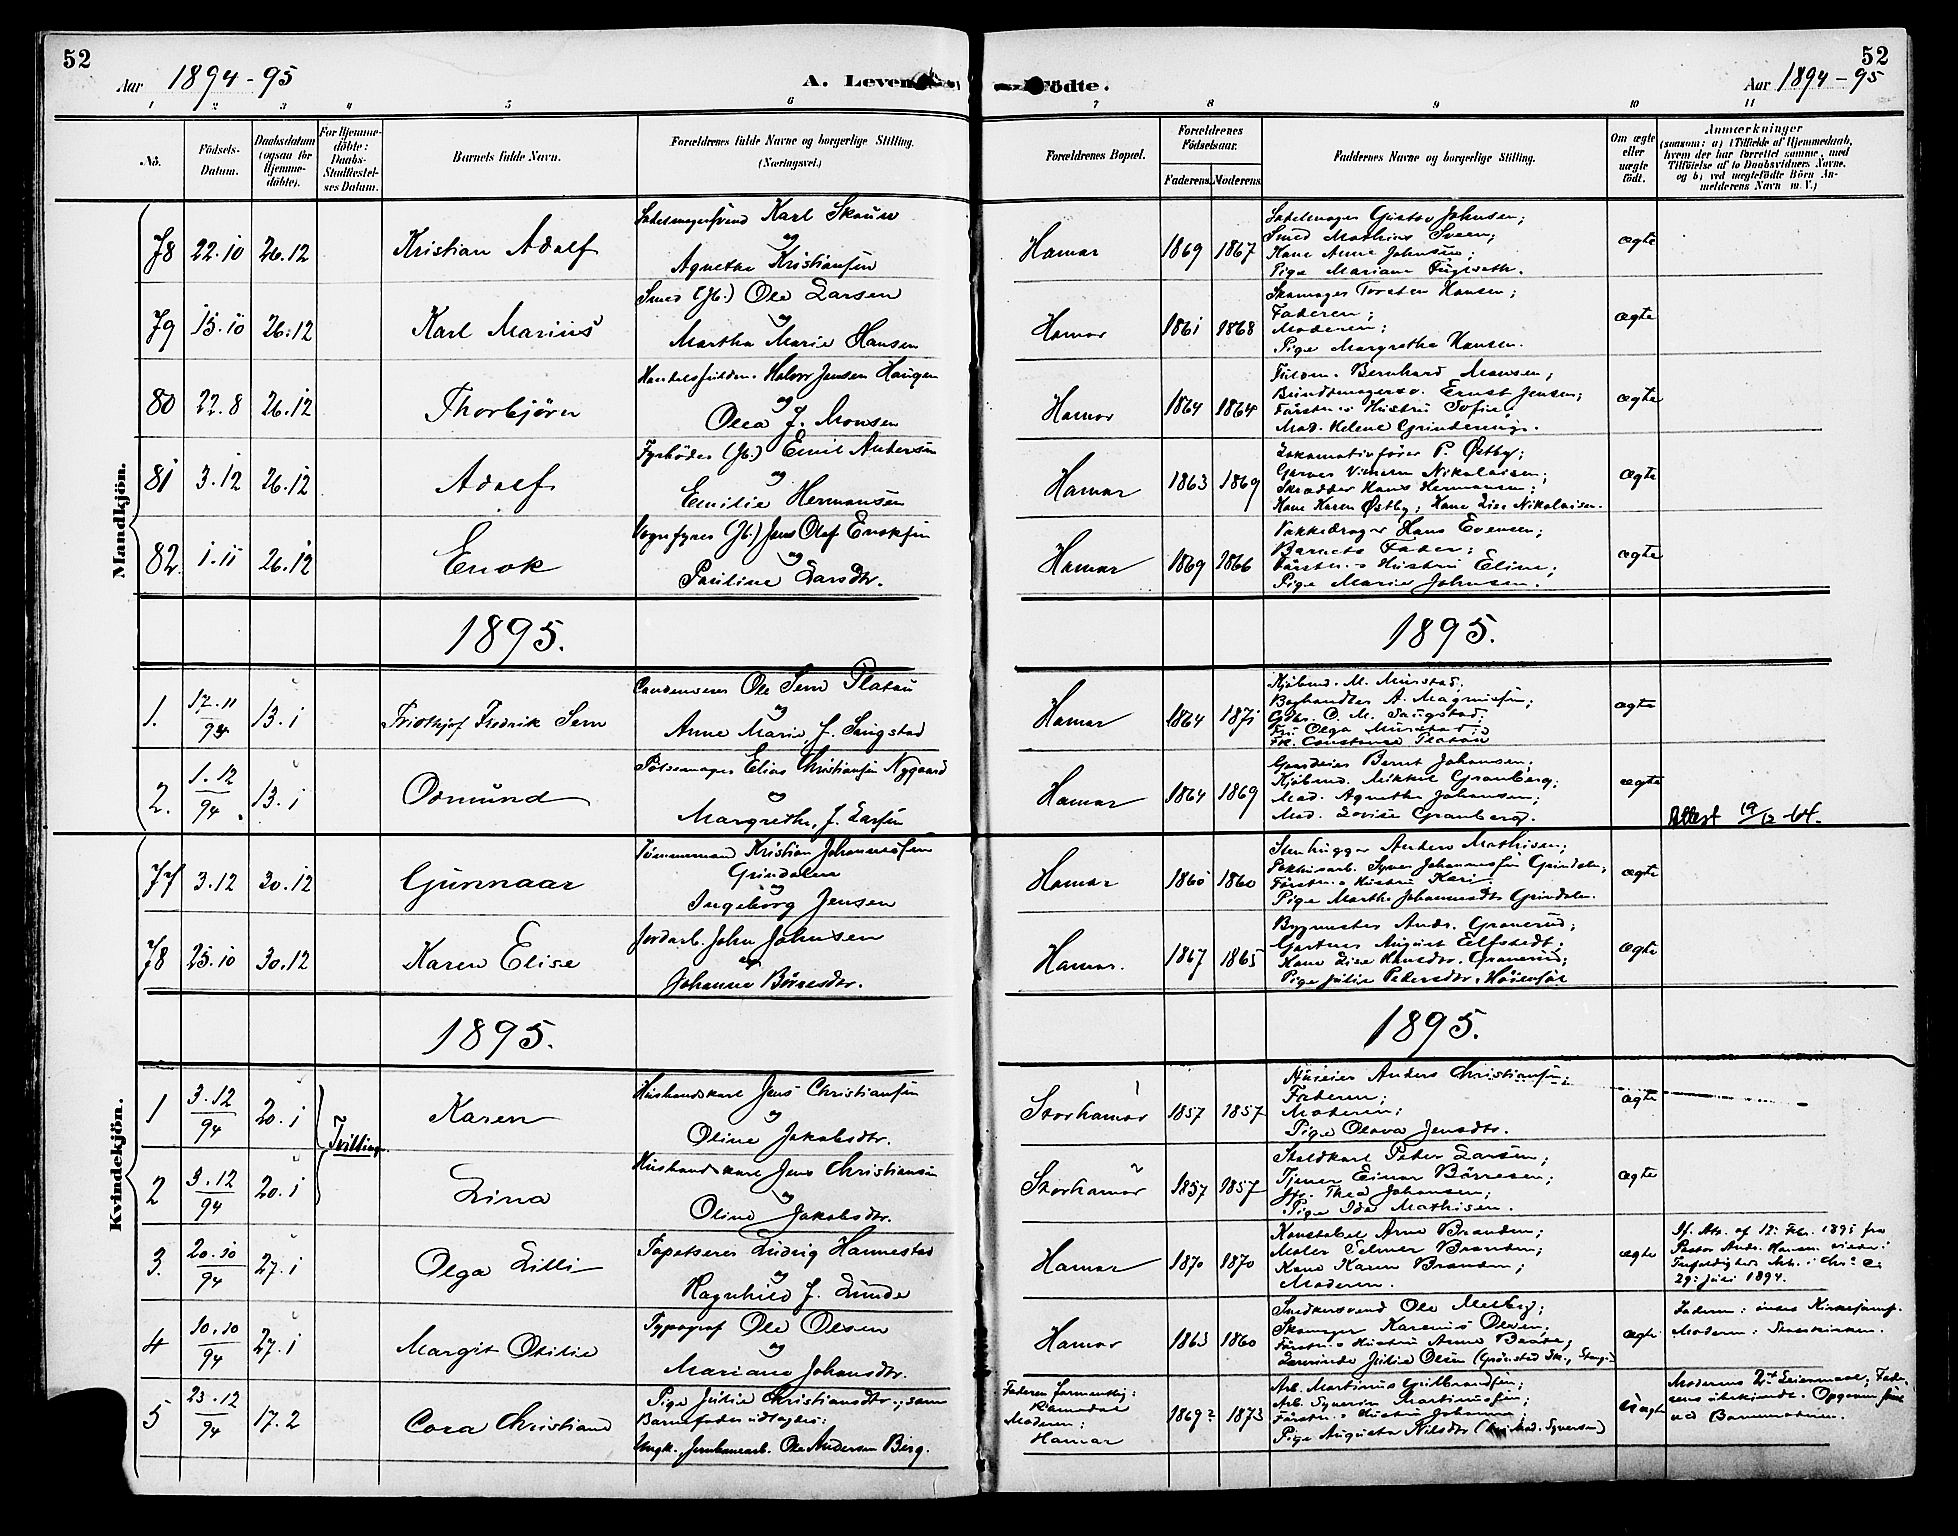 52
Aar 1894-95
A. Leven
1 2 3 4 5 6
No.
Födsels-Datum.
Daabsdatum (ogsaa for Hjemmedöbte).
For Hjemmedöbte: Daabs-Stadfæstelses Datum.
Barnets fulde Navn.
Forældrenes fulde Navne og borgerlige Stilling. (Næringsvei.)
Mandkjön.
78 22.10 26.12 Kristian Adolf
Karl Skouw
og
Agnethe Kristiansen
79 15.10 26.12 Karl Marius
Smed (Jb.) Ole Larsen
og
Martha Marie Hansen
80 22.8 26.12 Thorbjörn
Halvor Jensen Haugen
og
Olea J. Monsen
81 3.12 26.12 Adolf
Fyrböder (Jb.) Emil Andersen
og
Emilie Hermansen
82. 1.11 26.12 Enok
(Jb.) Jens Olaf Enoksen
og
Pauline Larsdtr.
1895.
1. 17.11/94 13.1 Fredrik Sem
Ole Sem Platou
og
Anne Marie, f. Singstad
2. 1.12/94 13.1 Osmund
Pölsemager Elias Christiansen Nygaard
og
Margrethe, f. Larsen
77 3.12 30.12 Gunnaar
Tömmermand Kristian Johannessen
Grindalen
og
Ingeborg Jensen
78 25.10 30.12 Karen Elise
Jordarb. John Johnsen
og
Johanne Börresdtr.
1895.
Kvindekjön.
1 3.12/94 20.1 Karen
Husmandskarl Jens Christiansen
og
Oline Jakobsdtr.
Tvilling
2 3.12/94 20.1 Lina
Husmandskarl Jens Christiansen
og
Oline Jakobsdtr.
3. 20.10/94 27.1 Olga Lilli
Tapetserer Ludvig Hannestad
og
Ragnhild f. Lunde
4 10.10/94 27.1 Margit Otilie
Typograf Ole Olsen
og
Mariane Johansdtr.
5 23.12/94 17.2 Cora Christiane
Pige Julie Christiansdtr., som
Barnefader udlagdes:
Ungk. Jernbanearb. Ole Andersen Berg.
52
ödte.
Aar 1894-95
7 8 9 10 11
Forældrenes Bopæl.
Forældrenes Födselsaar.
Faderens. Moderens.
Faddernes Navne og borgerlige Stilling.
Om ægte eller uægte födt.
Anmærkninger
(saasom: a) i Tilfælde af Hjemmedaab, hvem der har forrettet samme, med Tilföielse af to Daabsvidners Navne, og b) ved uægtefödte Börn Anmelderens Navn m. V.)
Hamar 1869 1867
Sadelmager Gustav Johnsen;
Smed Mathias Sveen;
Kone Anne Johnsen;
Pige Mariane Fuglseth.
ægte
Hamar 1861 1868
Skomager Torsten Hansen;
Faderen;
Moderen;
Pige Margrethe Hansen.
ægte
Hamar 1864 1864
Bernhard Monsen;
Buntmagersv. Ernst Jensen;
Förstn.s Hustru Sofie;
Mad. Helene Grinderengr.
ægte
Hamar 1863 1869
Lokomotivförer P. Østby;
Garver Nikolaisen;
Skrædder Hans Hermansen;
Kone Karen Østby; Kone Lise Nikolaisen.
ægte
Hamar 1869 1866
Pakkedrager Hans Evensen;
Barnets Fader;
Förstn.s Hustru Eline;
Pige Marie Johnsen.
ægte
1895.
Hamar 1864 1871
Kjöbmd. M. Murstad;
Boghandler A. Magnussen;
O. M. Saugstad;
Fru Olga Murstad;
Fr. Constance Platou
ægte
Hamar 1864 1869
Gaardeier Bernt Johansen;
Kjöbmd. Mikkel Granberg;
Mad. Agnethe Johansen;
Mad. Lovise Granberg.
ægte
Attest 19/12-64.
Hamar 1860 1860
Stenhugger Anders Mathisen;
Syver Johannessen Grindalen;
Förstn.s Hustru Kari;
Pige Marthe Johannesdtr Grindalen.
ægte
Hamar. 1867 1865
Bygmester Andr. Granerud;
Gartner August Elfstedt;
Kone Lise Hansdtr. Granerud;
Pige Julie Pedersdtr. Höiensjöe
ægte
1895.
Storhamar 1 1857 1857
Huseier Anders Christiansen;
Faderen;
Moderen;
Pige Olava Jensdtr.
ægte
Storhamar 2 1857 1857
Staldkarl Peter Larsen;
Tjener Einar Börresen;
Jfr. Thea Johansen;
Pige Ida Mathisen.
ægte
Hamar 1870 1870
Konstabel Arne Branden;
Maler Selmer Branden;
Kone Karen Branden;
Moderen.
ægte
If. Att. af 12. Febr. 1895 fra
Pastor Andr. Hansen viede i
Trefoldigheds Kirke i Chr.a
29. Juli 1894.
Hamar 1863 1860
Snedkersvend Ole Melby;
Skomager Karenus Olsen;
Förstn.s Hustru Anne
Lærerinde Julie Olsen (Grönstad Sk., Stange)
ægte
Faderen: ovses Kirkesamf.
Moderen: Statskirken.
Faderen formentlig:
Romedal
Moderen:
Hamar
1869? 1873
Arb. Martinus Gulbrandsen;
Arb. Syverin Martinussen;
Förstn.s Hustru Johanne
Pige Augusta Nilsdtr (hos Mad. Syversen)
uægte
Moderens 2det Leiermaal; Faderens
ubekjendt. Opgiven
ved Barnemoderen.